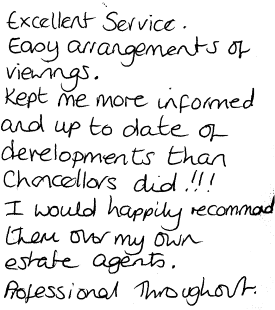 Excellent Service.
Easy arrangements of
viewings.
Kept me more informed
and up to date of
developments than
Chancellors did!!!
I would happily recommend
them over my own
estate agents.
Professional Throughout.